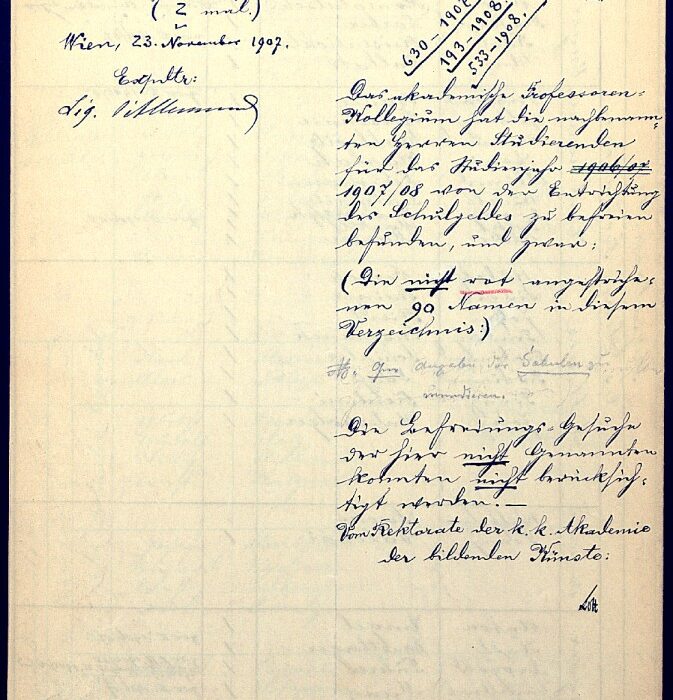 ( 2 mal.)
Wien, 23. November 1907.
Expdtr:
630–1907
193–1908.
533–1908.
Das akademische Professoren-
Kollegium hat die nachbenann-
ten Herren Studierenden
für das Studienjahr 1906/07
1907/08 von der Entrichtung
des Schulgeldes zu befreien
befunden, und zwar:
(Die nicht rot angestriche-
nen 90 Namen in diesem
Verzeichnis:)
Angaben der
Die Befreiungs-Gesuche
der hier nicht Genannten
konnten nicht berücksich-
tigt werden.—
Vom Rektorate der k. k. Akademie
der bildenden Künste: